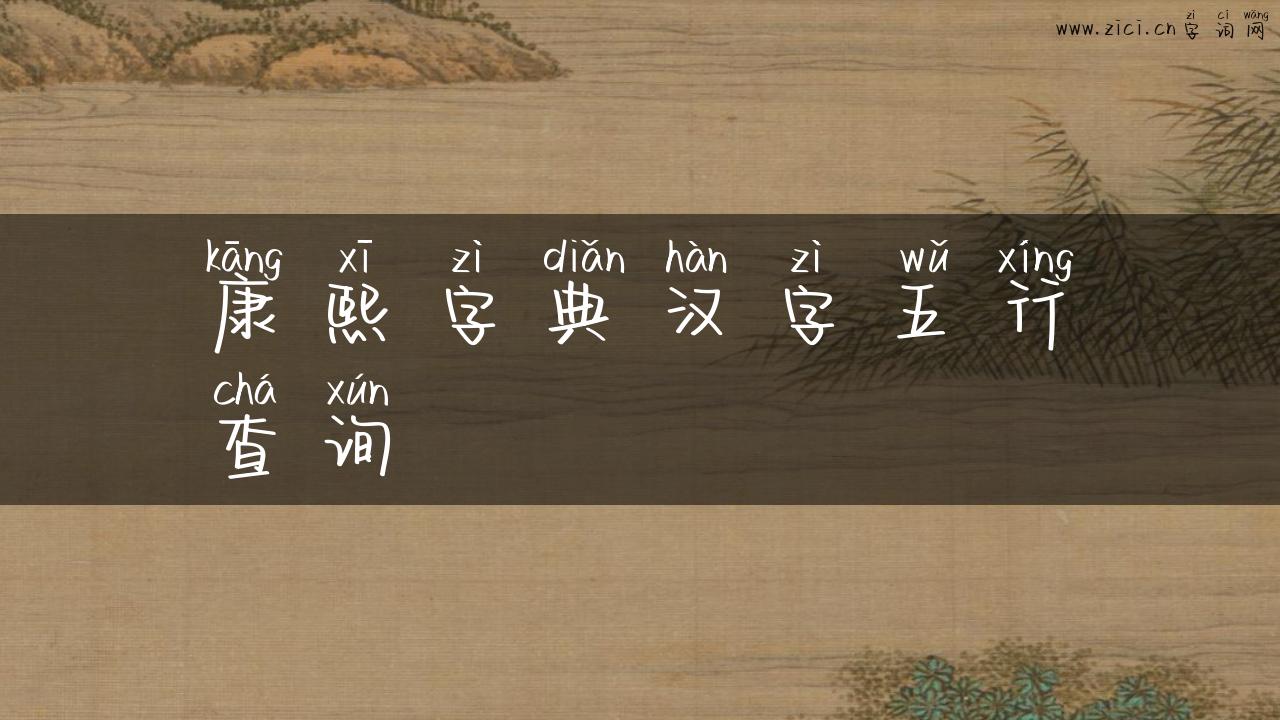 zì cí wǎng
www.zici.cn字词网
kāng xī zì diǎn hàn zì wǔ xíng
康熙字典汉字五行
chá xún
查询